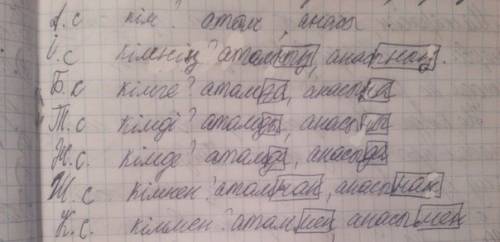 А.с кім? атам, анасы
І.с кімнің? атамның, анасының.
Б.с кімге? атамда, анасына
Т.с кімді? атамды, анасы
Ж.с. кімде? атамда, анасыда
Ш.с кімнен? атамнан, анасынан
К.с. кіммен? атаммен анасымен